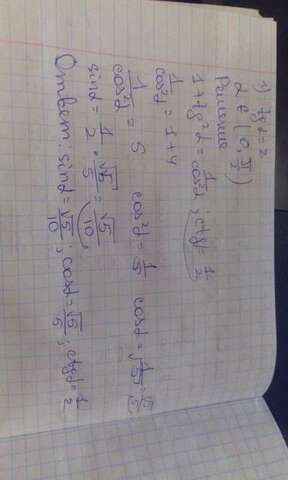 1) tgα = 2
α ∈ (0, π/2)
Решение
1 + tg²α = 1/cos²α ; ctgα = 1/2
1/cos²α = 1 + 4
1/cos²α = 5 cos²α = 1/5 cosα = 1/√5 = √5/5
sinα = 1/2 · √5/5 = √5/10
Ответ: sinα = √5/10 ; cosα = √5/5 ; ctgα = 1/2